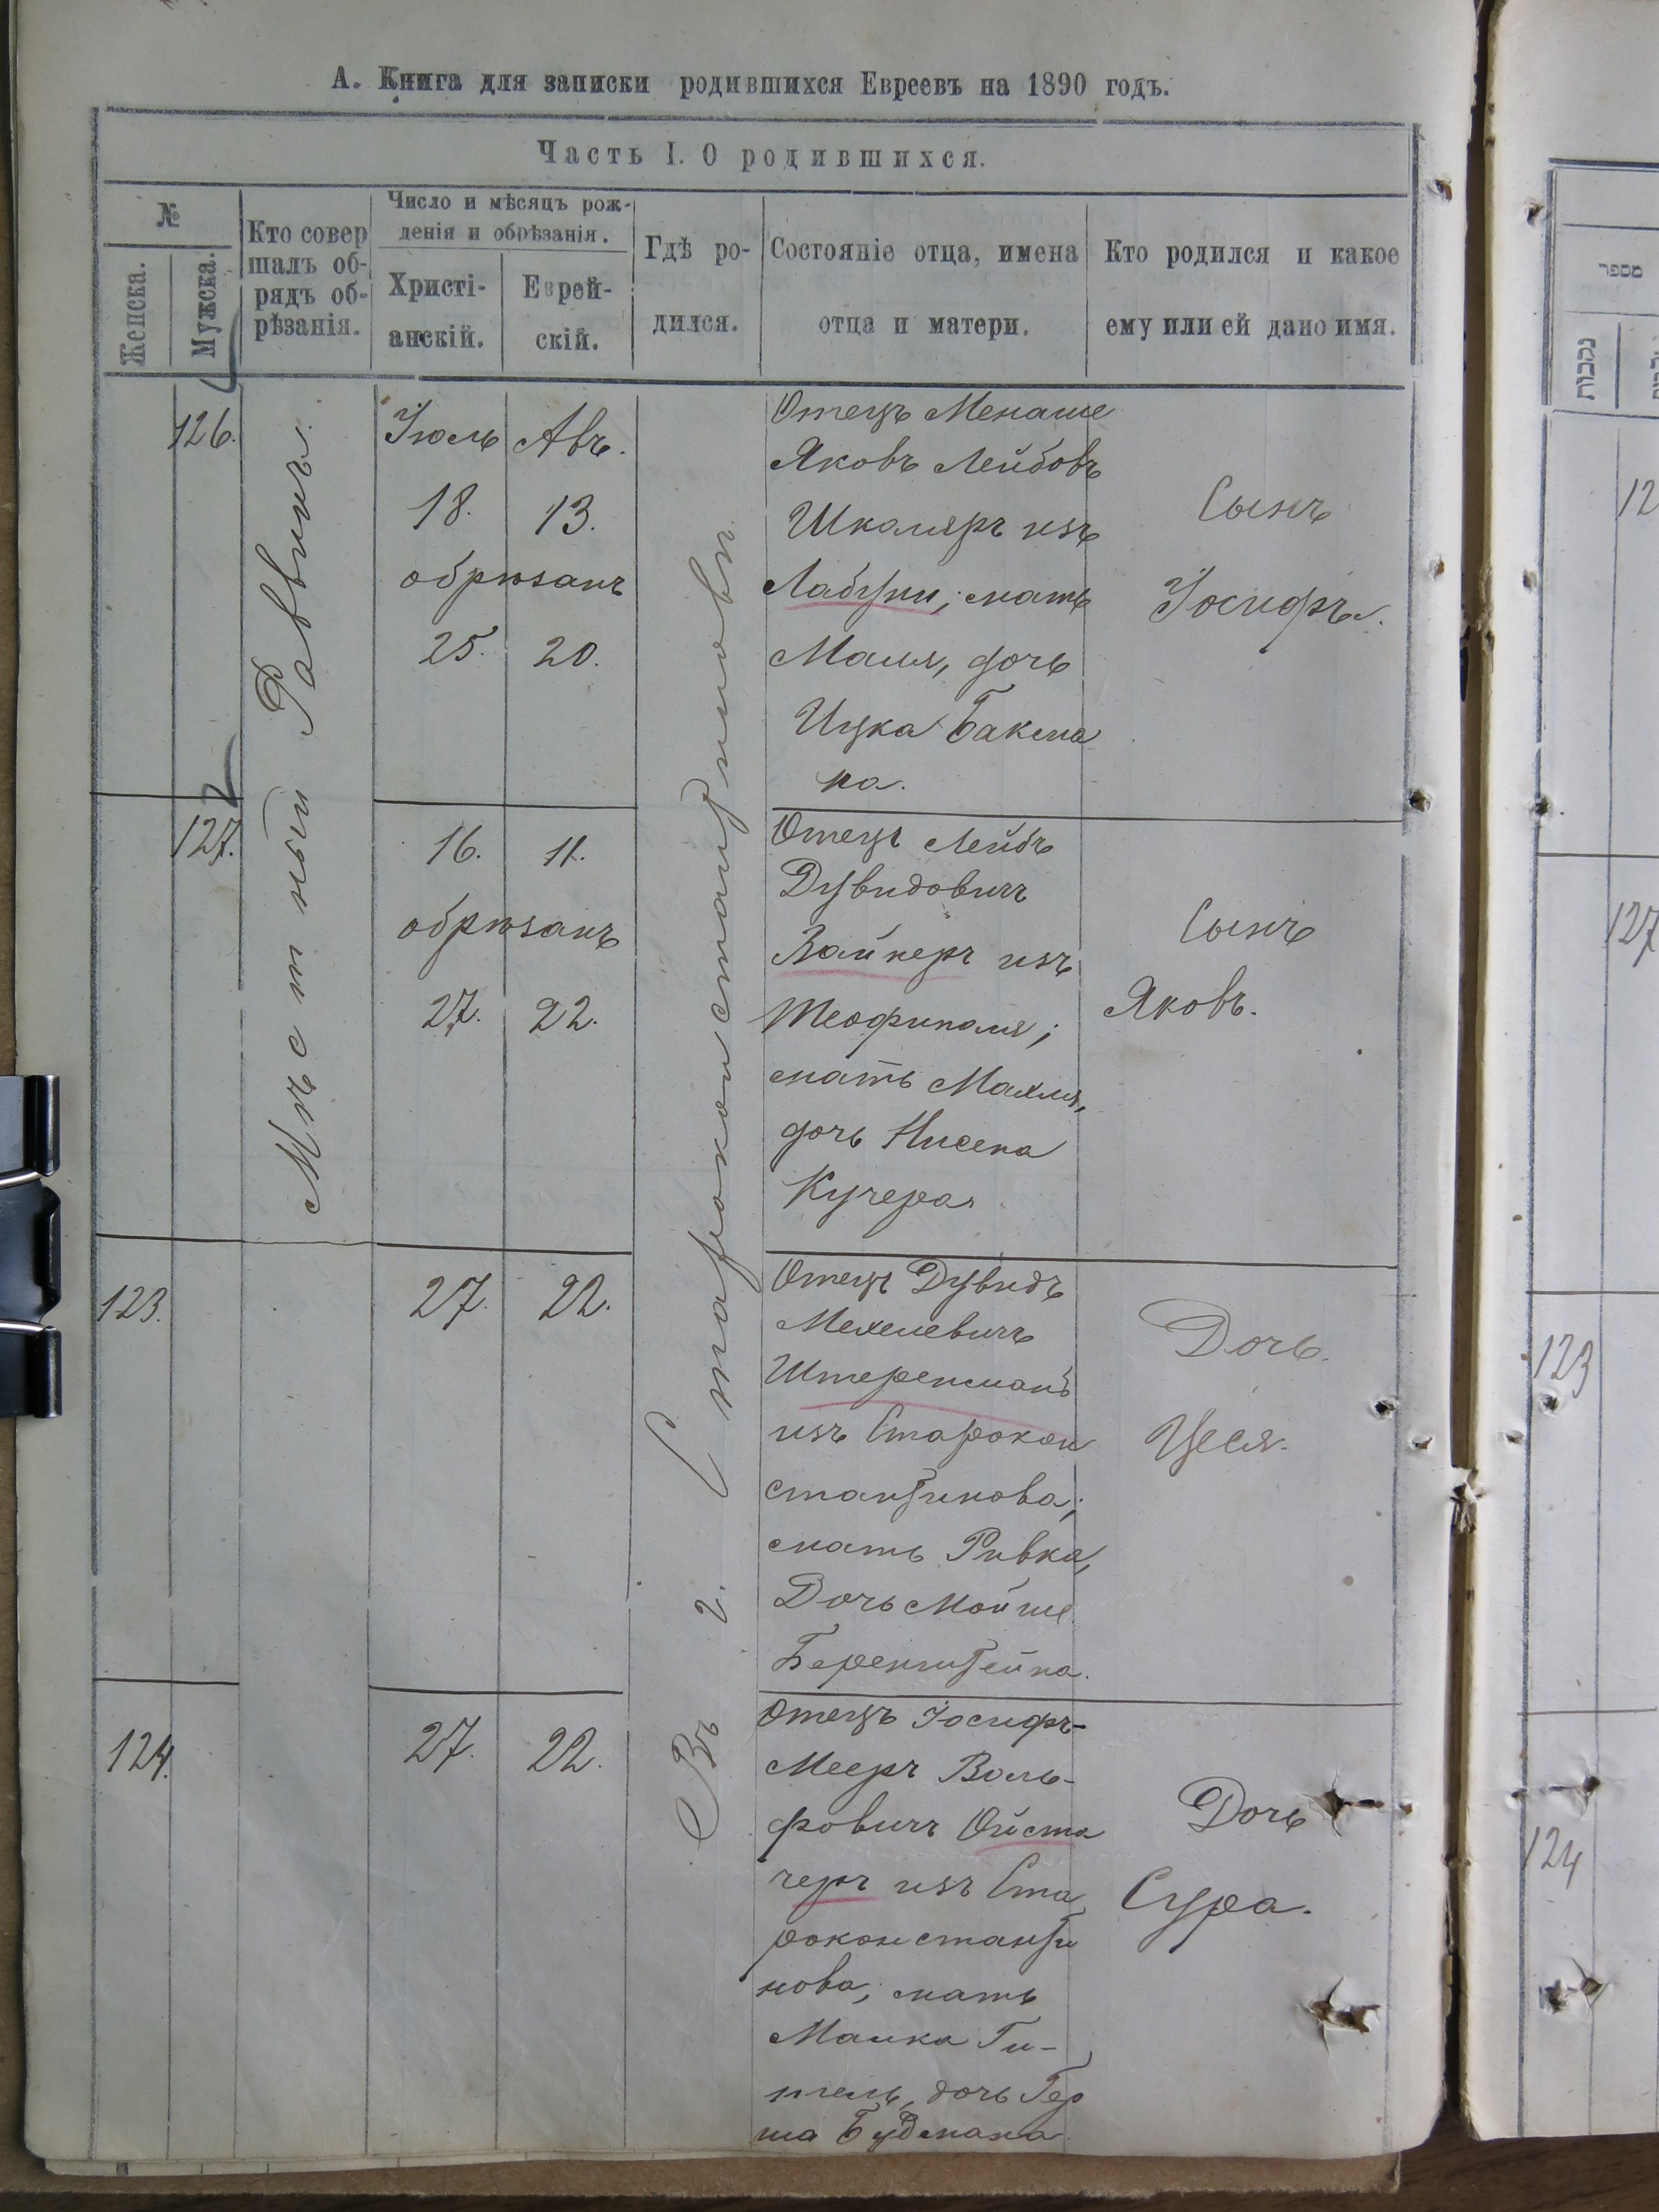 А. Книга для записки родившихся Евреевъ на 1890 годъ.
Часть I. О родившихся.
№
Женска.
Мужска.
Кто совер
шалъ об-
рядъ об-
рѣзанія.
Число и мѣсяцъ рож-
денія и обрѣзанія.
Христі-
анскій.
Еврей-
скій.
Гдѣ ро-
дился.
Состояніе отца, имена
отца и матери.
Кто родился и какое
ему или ей дано имя.
Мѣстный Раввинъ.
Въ г. Староконстантиновѣ
126.
Іюль Авъ.
18. 13.
обрѣзанъ
25. 20.
Отецъ Менаше
Яковъ Лейбовъ
Школяръ изъ
Лабуни; мать
Маля, дочь
Ицка Бакма
на.
Сынъ
Іосифъ.
127.
16. 11.
обрѣзанъ
27. 22.
Отецъ Лейбъ
Дувидовичъ
Вайнеръ изъ
Теофиполя;
мать Махля,
дочь Нисена
Кучера
Сынъ
Яковъ.
123.
27. 22.
Отецъ Дувидъ
Мехелевичъ
Штеренманъ
изъ Старокон
стантинова;
мать Ривка,
Дочь Мойше
Беренштейна.
Дочь.
Цеся.
124.
27. 22.
Отецъ Іосифъ-
Мееръ Воль-
фовичъ Ойста
черъ изъ Ста
роконстанти
нова, мать
Малка Ги-
тель, дочь Гер
ша Будмана
Дочь
Сура.
מספר
נקבות
12
127
123
124